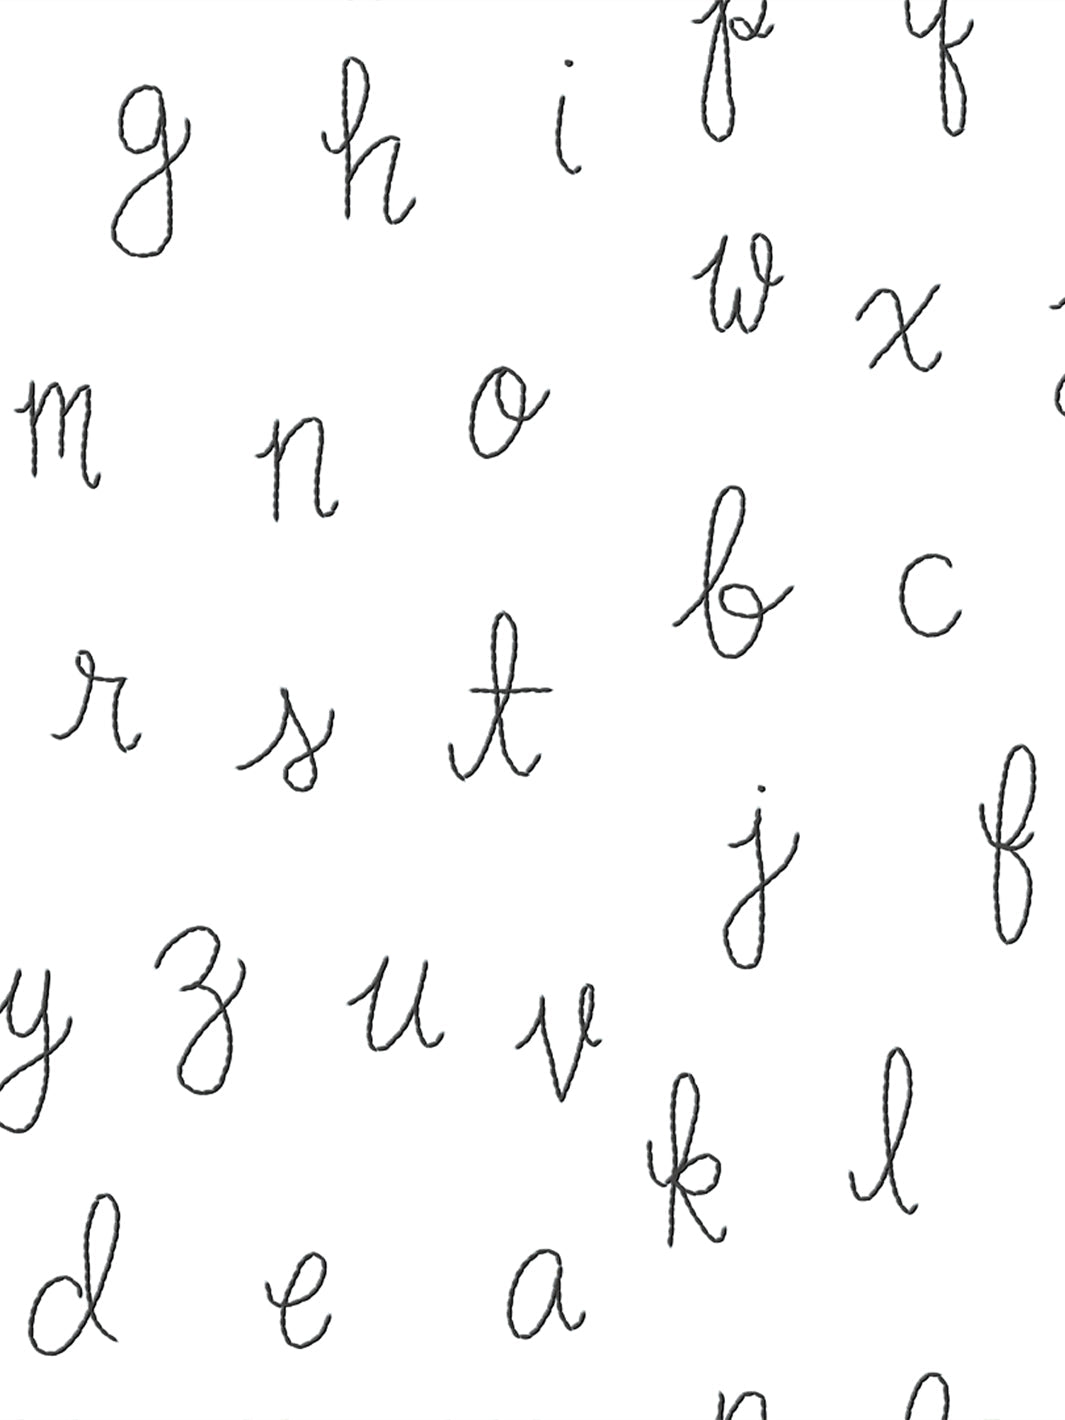 g h i p q
w x
m n o
b c
r s t
j f
y z u v
k l
d e a